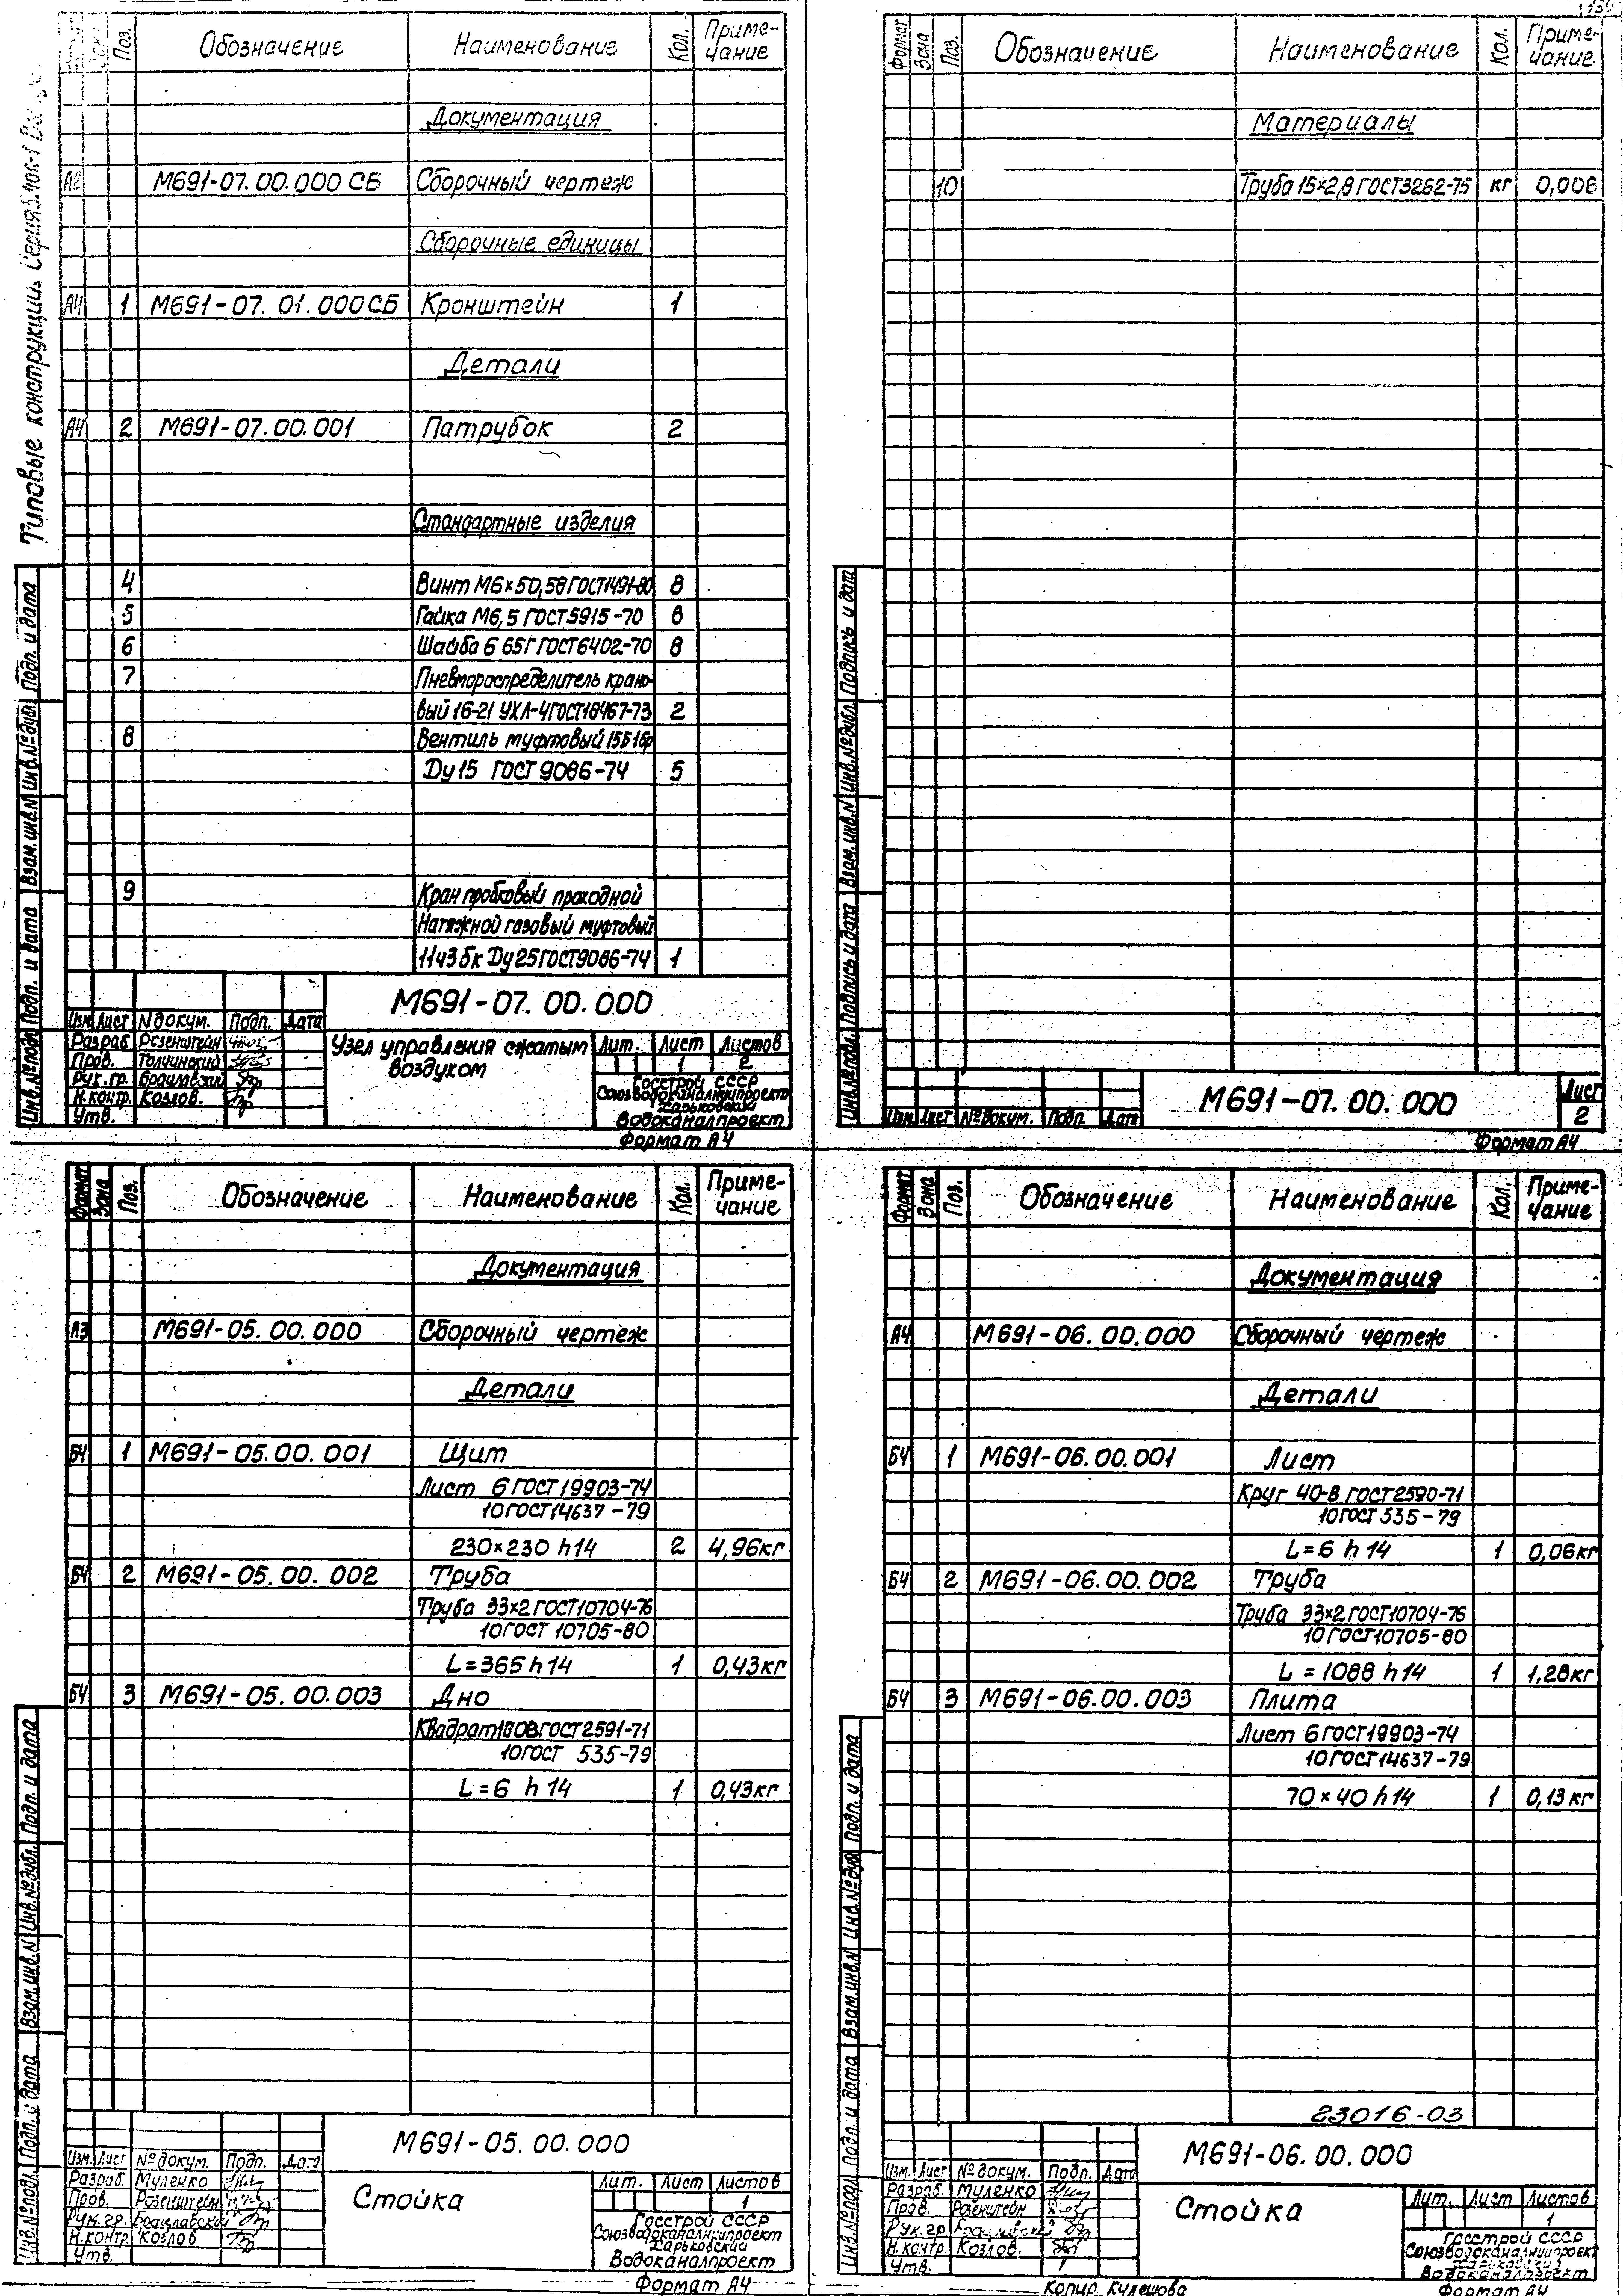 Типовые конструкции Серия
Поз. Обозначение Наименование Кол. Приме-
чание
Документация
М691-07.00.000 СБ Сборочный чертеж
Сборочные единицы
А4 1 М691-07.01.000СБ Кронштейн 1
Детали
А4 2 М691-07.00.001 Патрубок 2
Стандартные изделия
4 Винт М6×50,58 ГОСТ1491-80 8
5 Гайка М6,5 ГОСТ5915-70 8
6 Шайба 6 65Г ГОСТ6402-70 8
7 Пневмораспределитель крано-
вый 16-21 УХЛ-4ГОСТ18467-73 2
8 Вентиль муфтовый 15Б1бр
Ду15 ГОСТ 9086-74 5
9 Кран пробковый проходной
Натяжной газовый муфтовый
11ч3бк Ду25ГОСТ9086-74 1
М691-07.00.000
Изм. Лист №докум. Подп. Дата
Разраб. Розенштейн
Пров. Толчинский
Рук.гр. Браславский
Н.контр. Козлов.
Утв.
Узел управления сжатым
воздухом
Лит. Лист Листов
1 2
Госстрой СССР
Союзводоканалниипроект
Харьковский
Водоканалпроект
Формат А4
Инв.№подл. Подп. и дата Взам.инв.№ Инв.№дубл. Подп. и дата
Формат Зона Поз. Обозначение Наименование Кол. Приме-
чание
Материалы
10 Труба 15×2,8 ГОСТ3262-75 кг 0,006
Изм. Лист №докум. Подп. Дата
М691-07.00.000
Лист
2
Формат А4
Инв.№подл. Подпись и дата Взам.инв.№ Инв.№дубл. Подпись и дат
Формат Зона Поз. Обозначение Наименование Кол. Приме-
чание
Документация
А3 М691-05.00.000 Сборочный чертеж
Детали
БЧ 1 М691-05.00.001 Щит
Лист 6 ГОСТ19903-74
10ГОСТ14637-79
230×230 h14 2 4,96кг
БЧ 2 М691-05.00.002 Труба
Труба 33×2ГОСТ10704-76
10ГОСТ 10705-80
L=365 h14 1 0,43кг
БЧ 3 М691-05.00.003 Дно
Квадрат ГОСТ2591-71
10ГОСТ 535-79
L=6 h14 1 0,43кг
М691-05.00.000
Изм. Лист №докум. Подп. Дата
Разраб. Муленко
Пров. Розенштейн
Рук.гр. Браславский
Н.контр. Козлов
Утв.
Стойка
Лит. Лист Листов
1
Госстрой СССР
Союзводоканалниипроект
Харьковский
Водоканалпроект
Формат А4
Инв.№подл. Подп. и дата Взам.инв.№ Инв.№дубл. Подп. и дата
Формат Зона Поз. Обозначение Наименование Кол. Приме-
чание
Документация
А4 М691-06.00.000 Сборочный чертеж
Детали
БЧ 1 М691-06.00.001 Лист
Круг 40-В ГОСТ2590-71
10ГОСТ 535-79
L=6 h14 1 0,06кг
БЧ 2 М691-06.00.002 Труба
Труба 33×2ГОСТ10704-76
10ГОСТ10705-80
L=1088 h14 1 1,28кг
БЧ 3 М691-06.00.003 Плита
Лист 6 ГОСТ19903-74
10ГОСТ14637-79
70×40 h14 1 0,13кг
23016-03
М691-06.00.000
Изм. Лист №докум. Подп. Дата
Разраб. Муленко
Пров. Розенштейн
Рук.гр. Браславский
Н.контр. Козлов.
Утв.
Стойка
Лит. Лист Листов
1
Госстрой СССР
Союзводоканалниипроект
Харьковский
Водоканалпроект
Копир. Кулешова Формат А4
Инв.№подл. Подп. и дата Взам.инв.№ Инв.№дубл. Подп. и дата